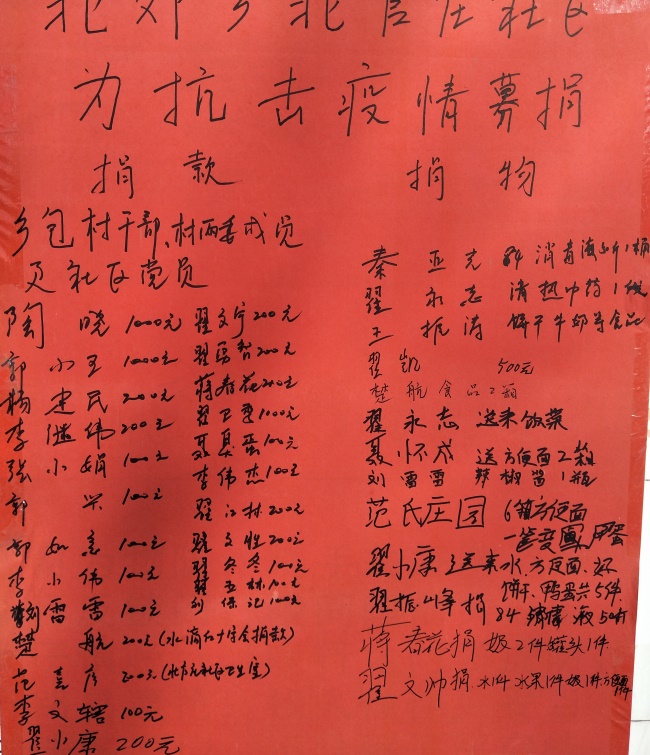 为抗击疫情募捐
捐款
乡包村干部、村两委成员
及社区党员
陶 晓 1000元
郭 小 1000元
杨 建民 200元
李 继伟 200元
张 小娟 100元
郭 兴 100元
郭 如意 100元
李 小伟 100元
刘 雷雷 100元
楚 航 200元(水滴红十字会捐款)
范 彦 200元
李 文辖 100元
翟 小康 200元
翟文宇 200元
翟 200元
蒋春花 200元
翟卫 1000元
聂 100元
李伟杰 100元
翟江林 200元
翟文胜 200元
翟冬冬 100元
翟五林 100元
刘保记 100元
捐物
秦亚光 84消毒液 1桶
翟永志 清热中药1级
王振涛 饼干牛奶等食品
翟凯 500元
楚航 食品2箱
翟永志 送来饭菜
聂怀成 送方便面2箱
刘雷雷 辣椒酱1瓶
范氏庄园 6箱方便面
一筐变 鸡蛋
翟小康 送来水、方便面、
饼干、鸭蛋共5件
翟振峰捐 84消毒液50斤
蒋春花捐 奶2件罐头1件
翟文帅捐 水1件 水果1件 奶1件